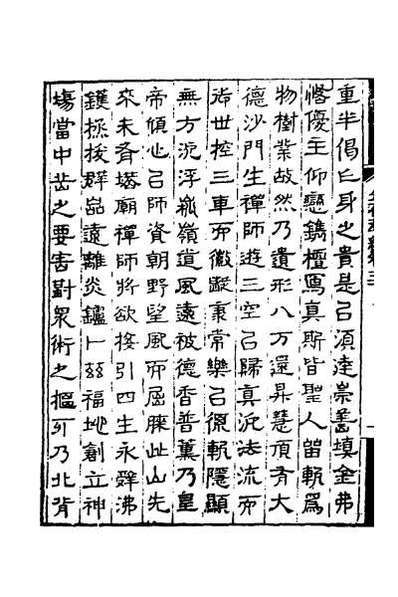 重半偈亡身之貴是㠯須達崇善填金弗
悋優主仰戀鐫檀寫真斯皆聖人留軌爲
物樹業故然乃遺形八万還昇慧頂有大
德沙門生禪師遊三空㠯歸真汎法流而
御世控三車而徽翫秉常樂㠯優軌隱顯
無方沉浮崧嶺道風遠被德香普薰乃皇
帝傾心㠯師資朝野望風而屈膝此山先
來未有塔廟禪師將欲接引四生永辤沸
鑊拯拔群品遠離炎爐卜茲福地創立神
塲當中岳之要害對衆術之樞牙乃北背